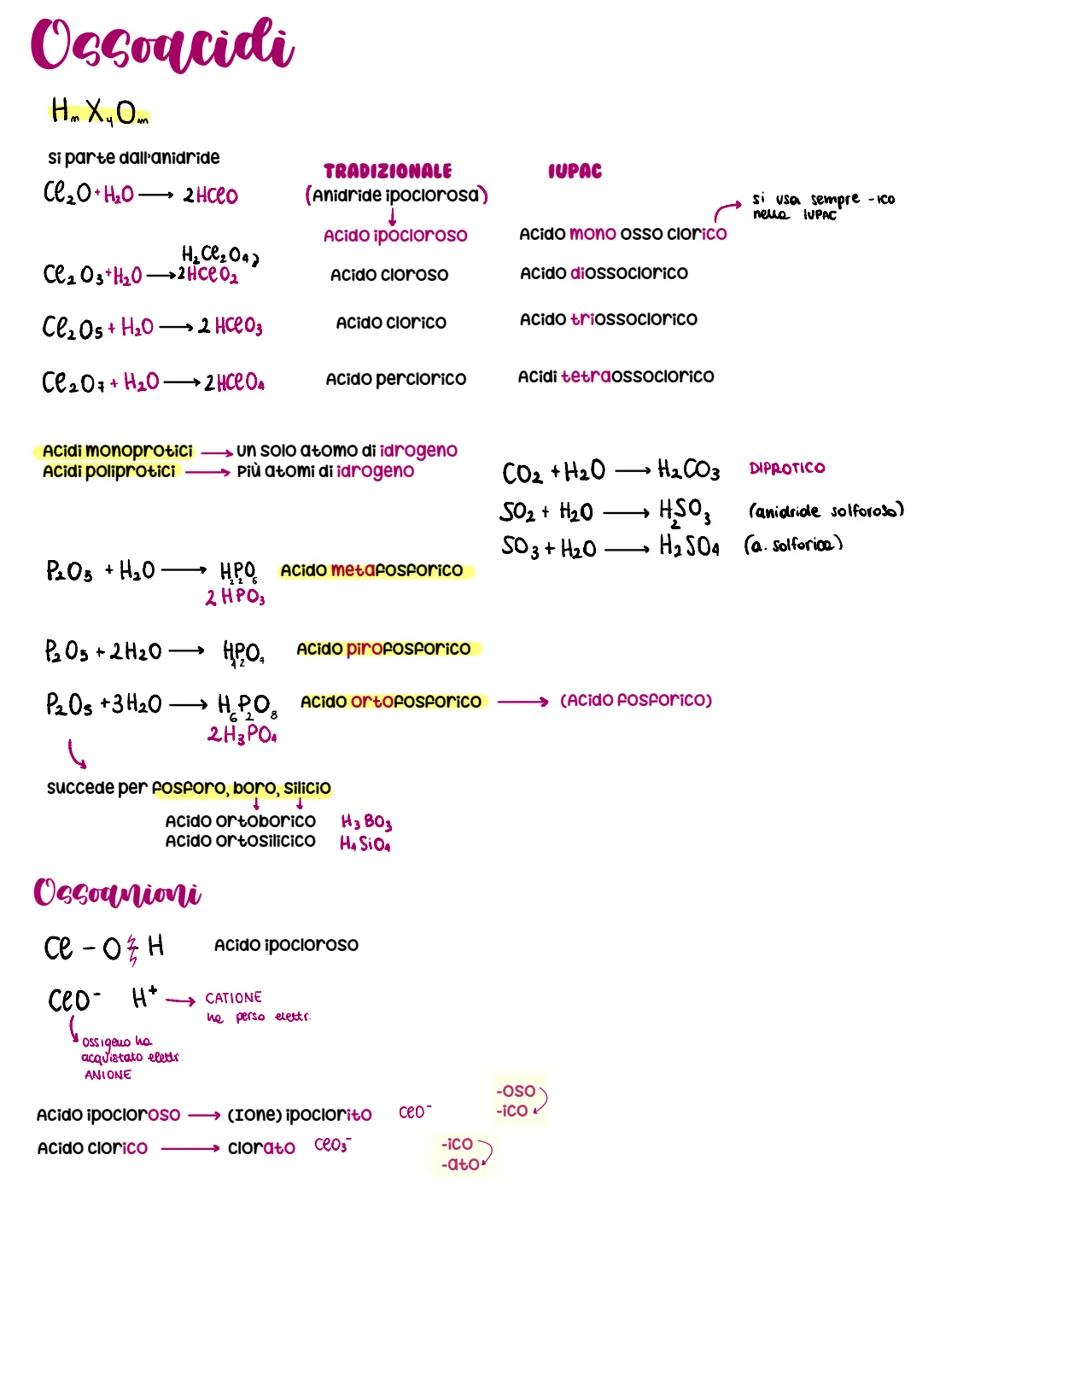 Ossoacidi
HₙXᵧOₘ
si parte dall'anidride
TRADIZIONALE IUPAC
Cl₂O + H₂O → 2HClO (Anidride ipoclorosa)
si usa sempre -ico
nella IUPAC
Acido ipocloroso Acido mono osso clorico
H₂Cl₂O₄
Cl₂O₃ + H₂O → 2HClO₂ Acido cloroso Acido diossoclorico
Cl₂O₅ + H₂O → 2 HClO₃ Acido clorico Acido triossoclorico
Cl₂O₇ + H₂O → 2HClO₄ Acido perclorico Acidi tetraossoclorico
Acidi monoprotici → un solo atomo di idrogeno
Acidi poliprotici → più atomi di idrogeno
CO₂ + H₂O → H₂CO₃ DIPROTICO
SO₂ + H₂O → H₂SO₃ (anidride solforosa)
SO₃ + H₂O → H₂SO₄ (a. solforica)
P₂O₅ + H₂O → H₂P₂O₆ Acido metafosforico
2 HPO₃
P₂O₅ + 2H₂O → H₄P₂O₇ Acido pirofosforico
P₂O₅ + 3H₂O → H₆P₂O₈ Acido ortofosforico → (Acido fosforico)
2H₃PO₄
succede per fosforo, boro, silicio
Acido ortoborico H₃BO₃
Acido ortosilicico H₄SiO₄
Ossoanioni
Cl - O H Acido ipocloroso
ClO⁻ H⁺ → CATIONE
ha perso elettr.
ossigeno ha
acquistato elettr.
ANIONE
-oso
Acido ipocloroso → (Ione) ipoclorito ClO⁻ -ico
Acido clorico → clorato ClO₃⁻ -ico
-ato